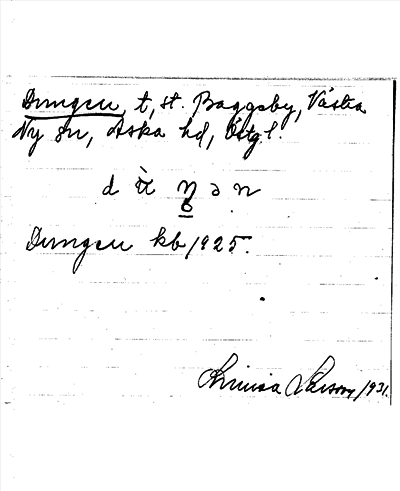 Dungen, t, st. Baggeby, Västra
Ny sn, Aska hd, Östgl.
Dungen kb 1925.
Larsson 1931.